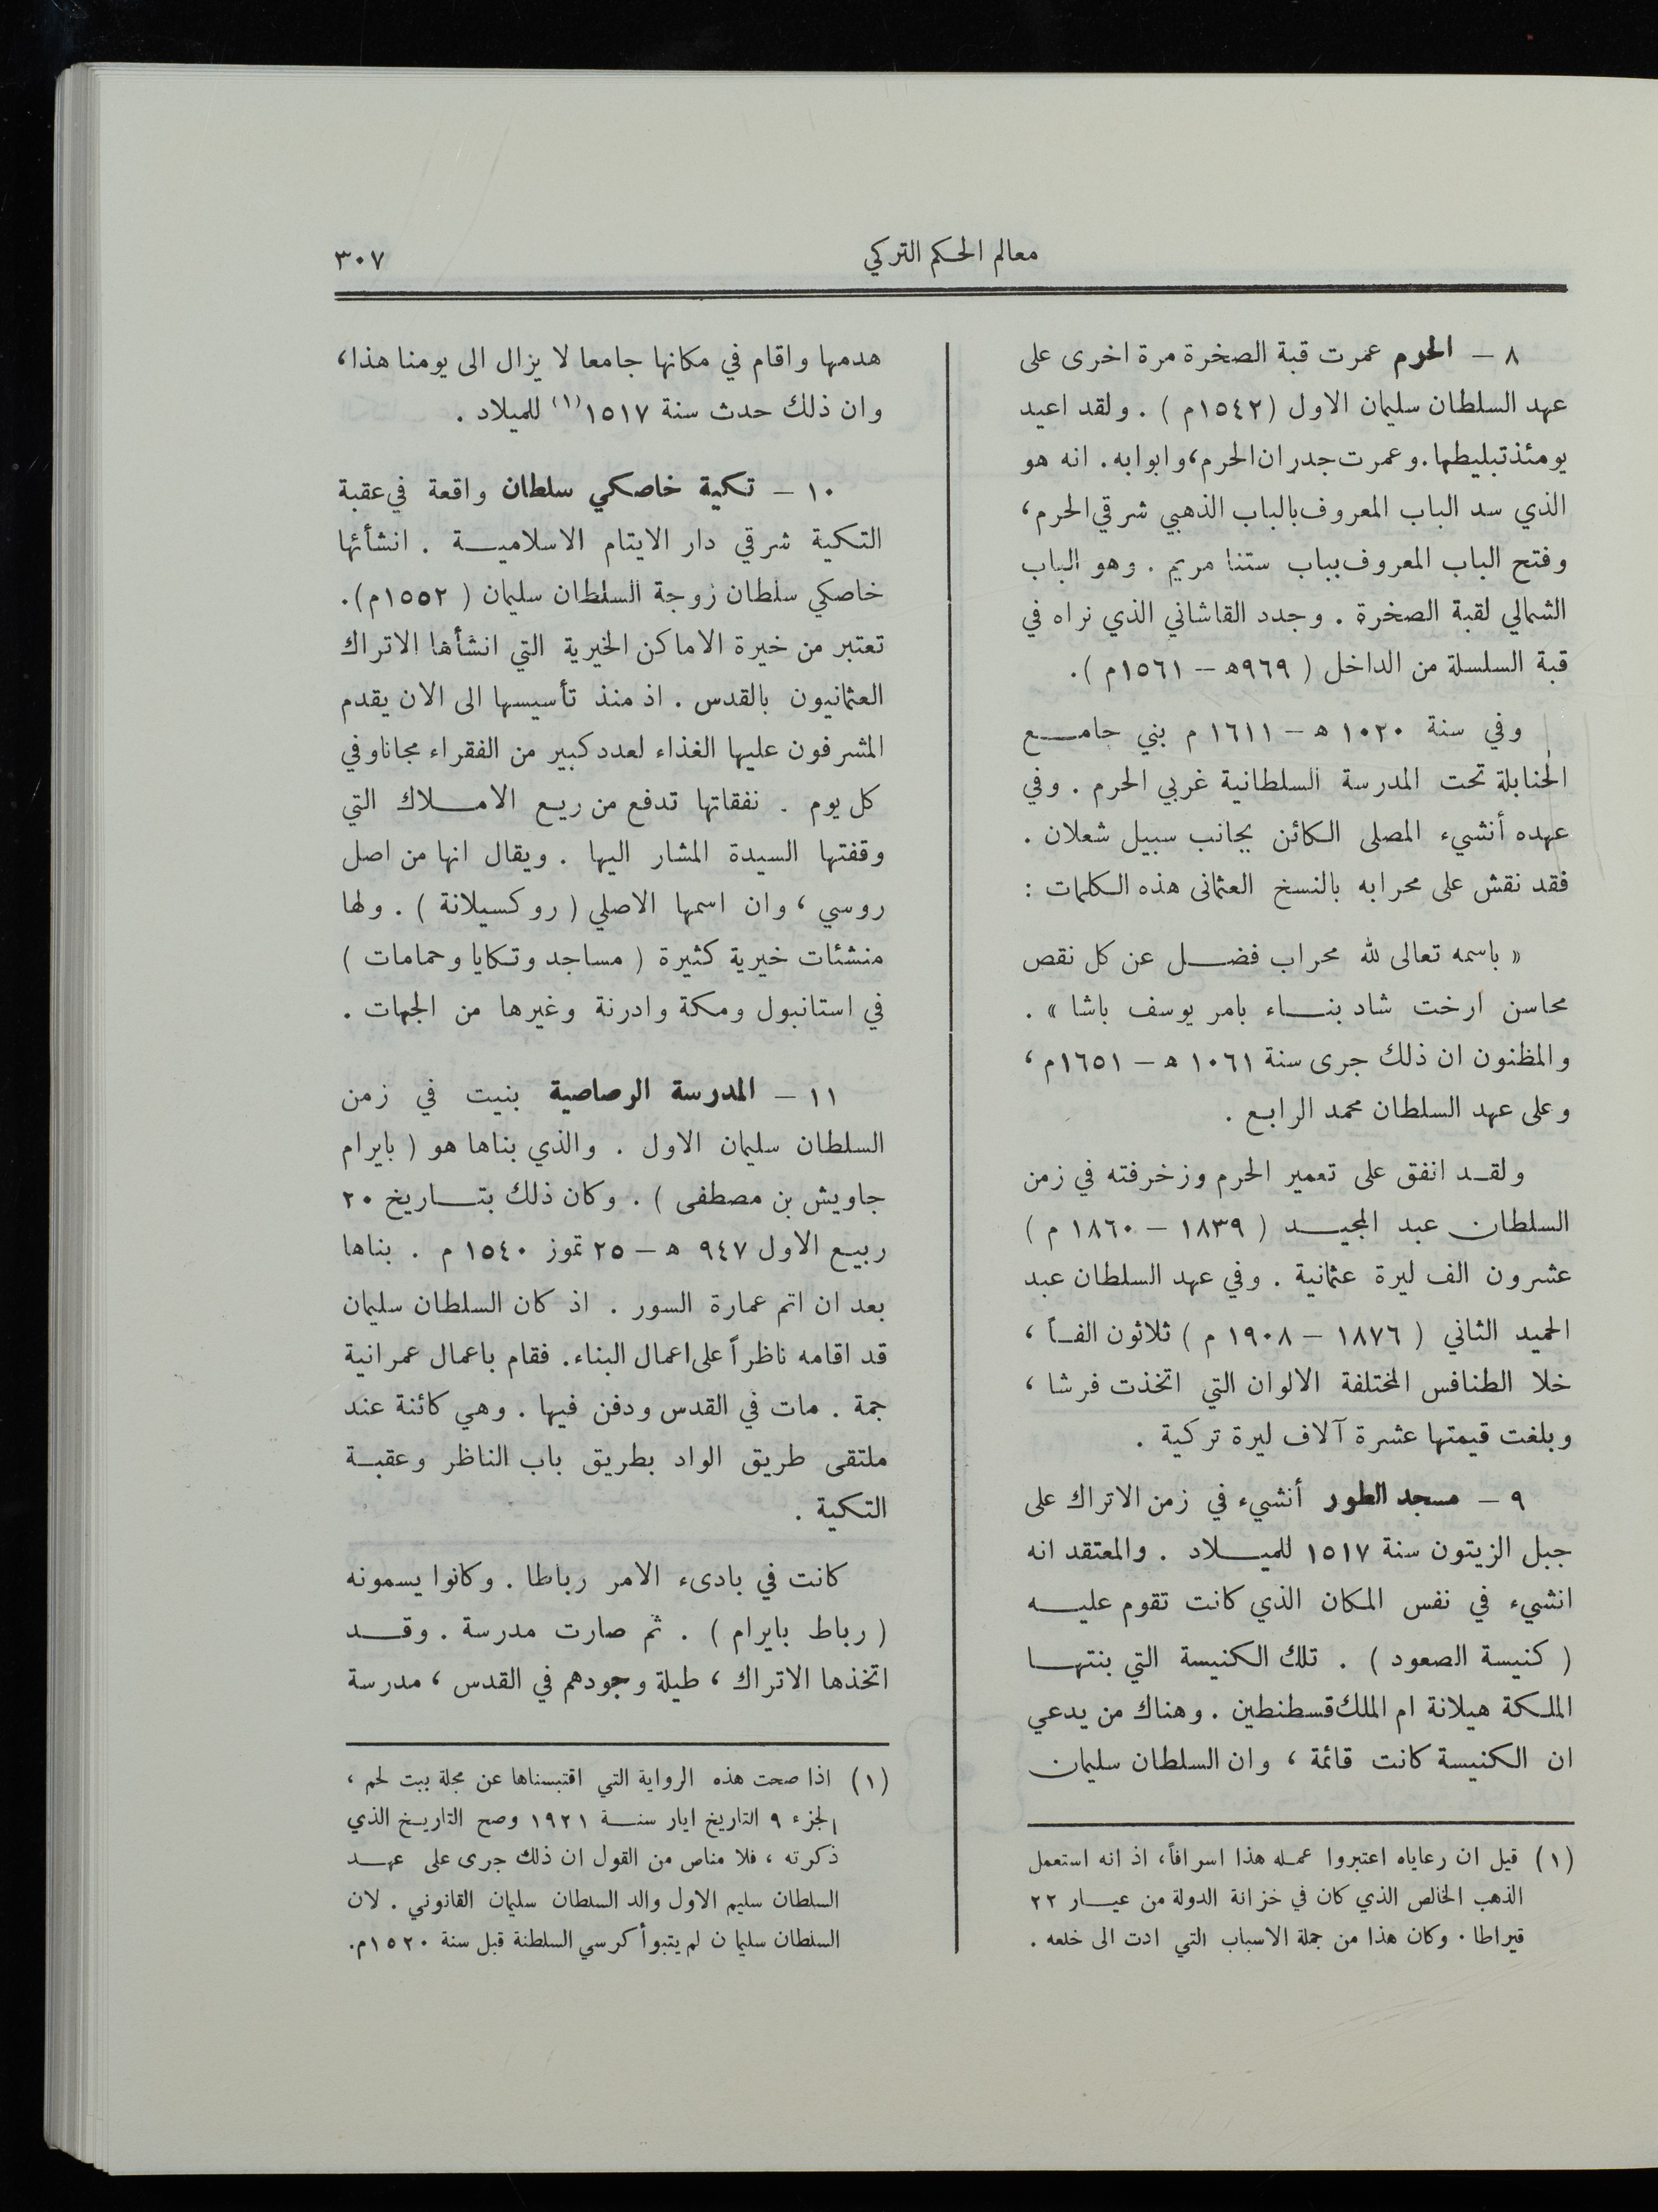 معالم الحكم التركي
٣٠٧
٨ – الحرم عمرت قبة الصخرة مرة اخرى على
عهد السلطان سليمان الاول (١٥٤٢م) . ولقد اعيد
يومئذ تبليطها. وعمرت جدران الحرم، وابوابه. انه هو
الذي سد الباب المعروف بالباب الذهبي شرقي الحرم،
وفتح الباب المعروف بباب ستنا مريم . وهو الباب
الشمالي لقبة الصخرة . وجدد القاشاني الذي نراه في
قبة السلسلة من الداخل ( ٩٦٩هـ – ١٥٦١م ).
وفي سنة ١٠٢٠ هـ – ١٦١١ م بني جامع
الحنابلة تحت المدرسة السلطانية غربي الحرم . وفي
عهده أنشيء المصلى الكائن بجانب سبيل شعلان .
فقد نقش على محرابه بالنسخ العثمانى هذه الكلمات :
« باسمه تعالى لله محراب فضل عن كل نقص
محاسن ارخت شاد بناء بامر يوسف باشا » .
والمظنون ان ذلك جرى سنة ١٠٦١ هـ – ١٦٥١م ،
وعلى عهد السلطان محمد الرابع .
ولقد انفق على تعمير الحرم وزخرفته في زمن
السلطان عبد المجيد ( ١٨٣٩ – ١٨٦٠ م )
عشرون الف ليرة عثمانية . وفي عهد السلطان عبد
الحميد الثاني ( ١٨٧٦ – ١٩٠٨ م ) ثلاثون الفاً ،
خلا الطنافس المختلفة الالوان التي اتخذت فرشا ،
وبلغت قيمتها عشرة آلاف ليرة تركية .
٩ – مسجد الطور أنشيء في زمن الاتراك على
جبل الزيتون سنة ١٥١٧ للميلاد . والمعتقد انه
انشيء في نفس المكان الذي كانت تقوم عليه
( كنيسة الصعود ) . تلك الكنيسة التي بنتها
الملكة هيلانة ام الملك قسطنطين . وهناك من يدعي
ان الكنيسة كانت قائمة ، وان السلطان سليمان
(١) قيل ان رعاياه اعتبروا عمله هذا اسرافاً، اذ انه استعمل
الذهب الخالص الذي كان في خزانة الدولة من عيار ٢٢
قيراطا . وكان هذا من جملة الاسباب التي ادت الى خلعه .
هدمها واقام في مكانها جامعا لا يزال الى يومنا هذا،
وان ذلك حدث سنة ١٥١٧(١) للميلاد .
١٠ – تكية خاصكي سلطان واقعة في عقبة
التكية شرقي دار الايتام الاسلامية . انشأتها
خاصكي سلطان زوجة السلطان سليمان ( ١٥٥٢م).
تعتبر من خيرة الاماكن الخيرية التي انشأها الاتراك
العثمانيون بالقدس . اذ منذ تأسيسها الى الان يقدم
المشرفون عليها الغذاء لعدد كبير من الفقراء مجانا وفي
كل يوم . نفقاتها تدفع من ريع الاملاك التي
وقفتها السيدة المشار اليها . ويقال انها من اصل
روسي ، وان اسمها الاصلي ( روكسيلانة ) . ولها
منشئات خيرية كثيرة ( مساجد وتكايا وحمامات )
في استانبول ومكة وادرنة وغيرها من الجهات .
١١ – المدرسة الرصاصية بنيت في زمن
السلطان سليمان الاول . والذي بناها هو ( بايرام
جاويش بن مصطفى ) . وكان ذلك بتاريخ ٢٠
ربيع الاول ٩٤٧ هـ – ٢٥ تموز ١٥٤٠ م . بناها
بعد ان اتم عمارة السور . اذ كان السلطان سليمان
قد اقامه ناظراً على اعمال البناء. فقام باعمال عمرانية
جمة . مات في القدس ودفن فيها . وهي كائنة عند
ملتقى طريق الواد بطريق باب الناظر وعقبة
التكية .
كانت في بادىء الامر رباطا . وكانوا يسمونه
( رباط بايرام ) . ثم صارت مدرسة . وقد
اتخذها الاتراك ، طيلة وجودهم في القدس ، مدرسة
(١) اذا صحت هذه الرواية التي اقتبسناها عن مجلة بيت لحم ،
الجزء ٩ التاريخ ايار سنة ١٩٢١ وصح التاريخ الذي
ذكرته ، فلا مناص من القول ان ذلك جرى على عهد
السلطان سليم الاول والد السلطان سليمان القانوني . لان
السلطان سليمان لم يتبوأ كرسي السلطنة قبل سنة ١٥٢٠م.